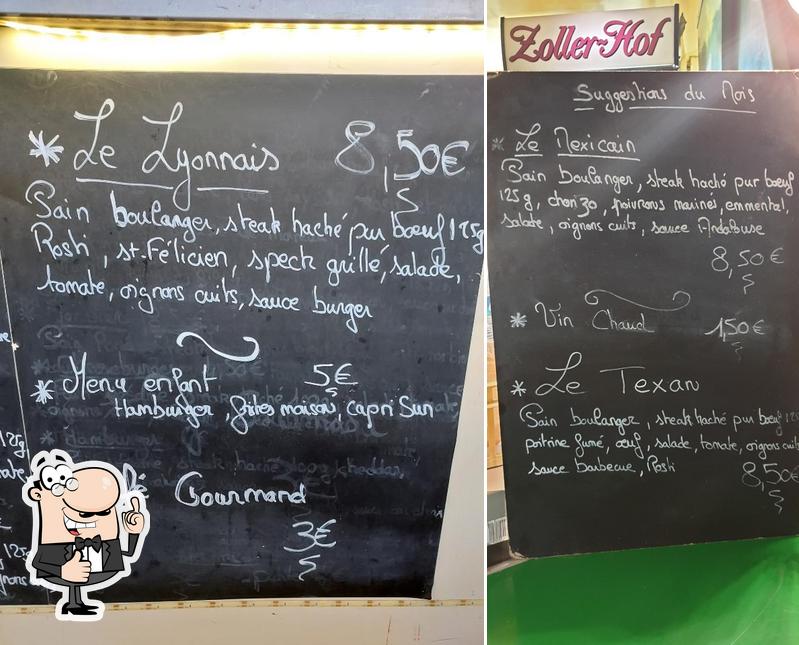 * Le Lyonnais 8,50€
Pain boulanger, steak haché pur bœuf 125g
Rosti, st-Félicien, speck grillé, salade,
tomate, oignons cuits, sauce burger
* Menu enfant 5€
Hamburger, frites maison, capri Sun
Gourmand
3€
Zoller-Hof
Suggestions du Mois
* Le Mexicain
Pain Boulanger, steak haché pur bœuf
125g, chorizo, poivrons marinés, emmental,
salade, oignons cuits, sauce Andalouse
8,50€
* Vin Chaud 1,50€
* Le Texan
Pain boulanger, steak haché pur bœuf 125
poitrine fumé, œuf, salade, tomate, oignons cuits
sauce barbecue, Rosti
8,50€